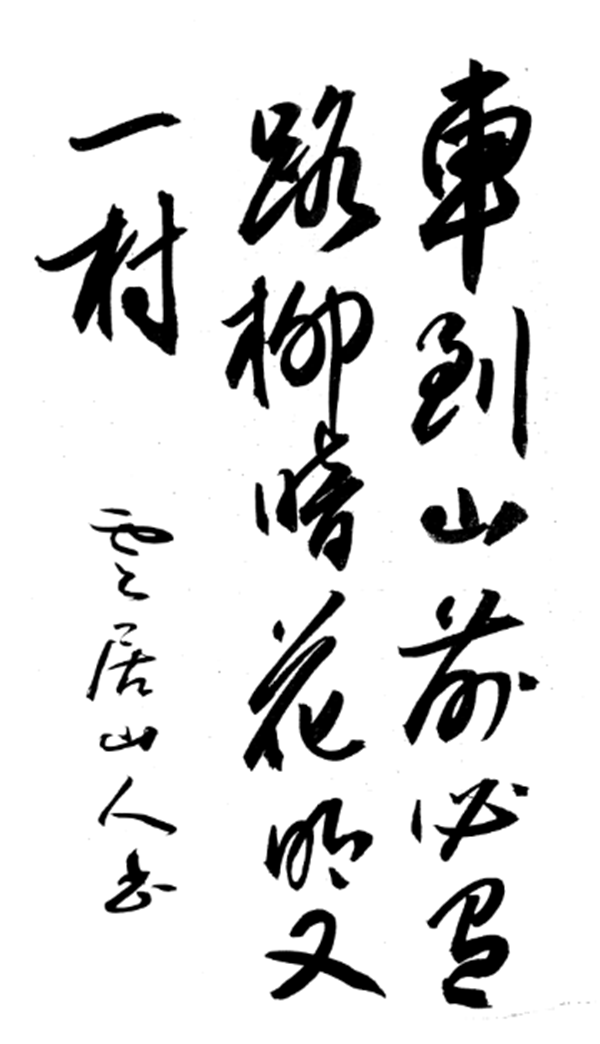 車到山前必有
路柳暗花明又
一村
雲居山人書